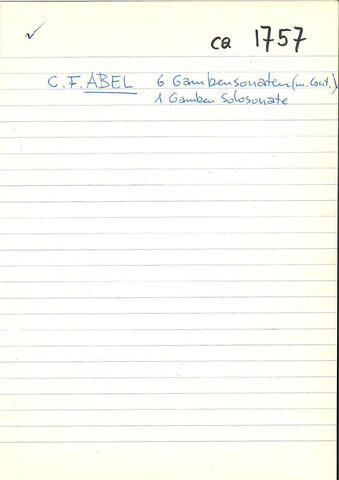 ca 1757
C. F. ABEL 6 Gambensonaten (m. Cont.)
1 Gamben Solosonate